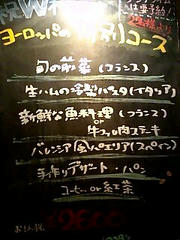 祝W杯
は要予約
2名様より
ヨーロッパの コース
旬の前菜(フランス)
生ハムの冷製パスタ(イタリア)
新鮮な魚料理(フランス)
or
牛フィレ肉ステーキ
バレンシア風パエリア(スペイン)
手作りデザート・パン
コーヒー or 紅茶
お1人様